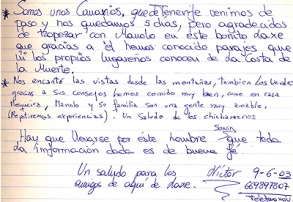 * Somos unos Canarios, que Tenerife venimos de
paso y nos quedamos 5 dias, pero agradecidos
de tropezar con Manolo en este bonito Laxe
que gracias a él hemos conocido parajes, que
ni los propios lugareños conocen de la Costa de
la Muerte.
* Nos encantó las vistas desde las montañas, tambien Los Verdes
gracias a sus consejos hemos comido muy bien, como en casa
Manolo y su familia son una gente muy amable.
(Repetiremos experiencias). Un Saludo de los chicharreros
Hay que llevarse por éste hombre que toda
SONIA
la información dada es de buena fe.
Un saludo para los
amigos de aquí de Laxe.
Victor 9-6-03
669897807